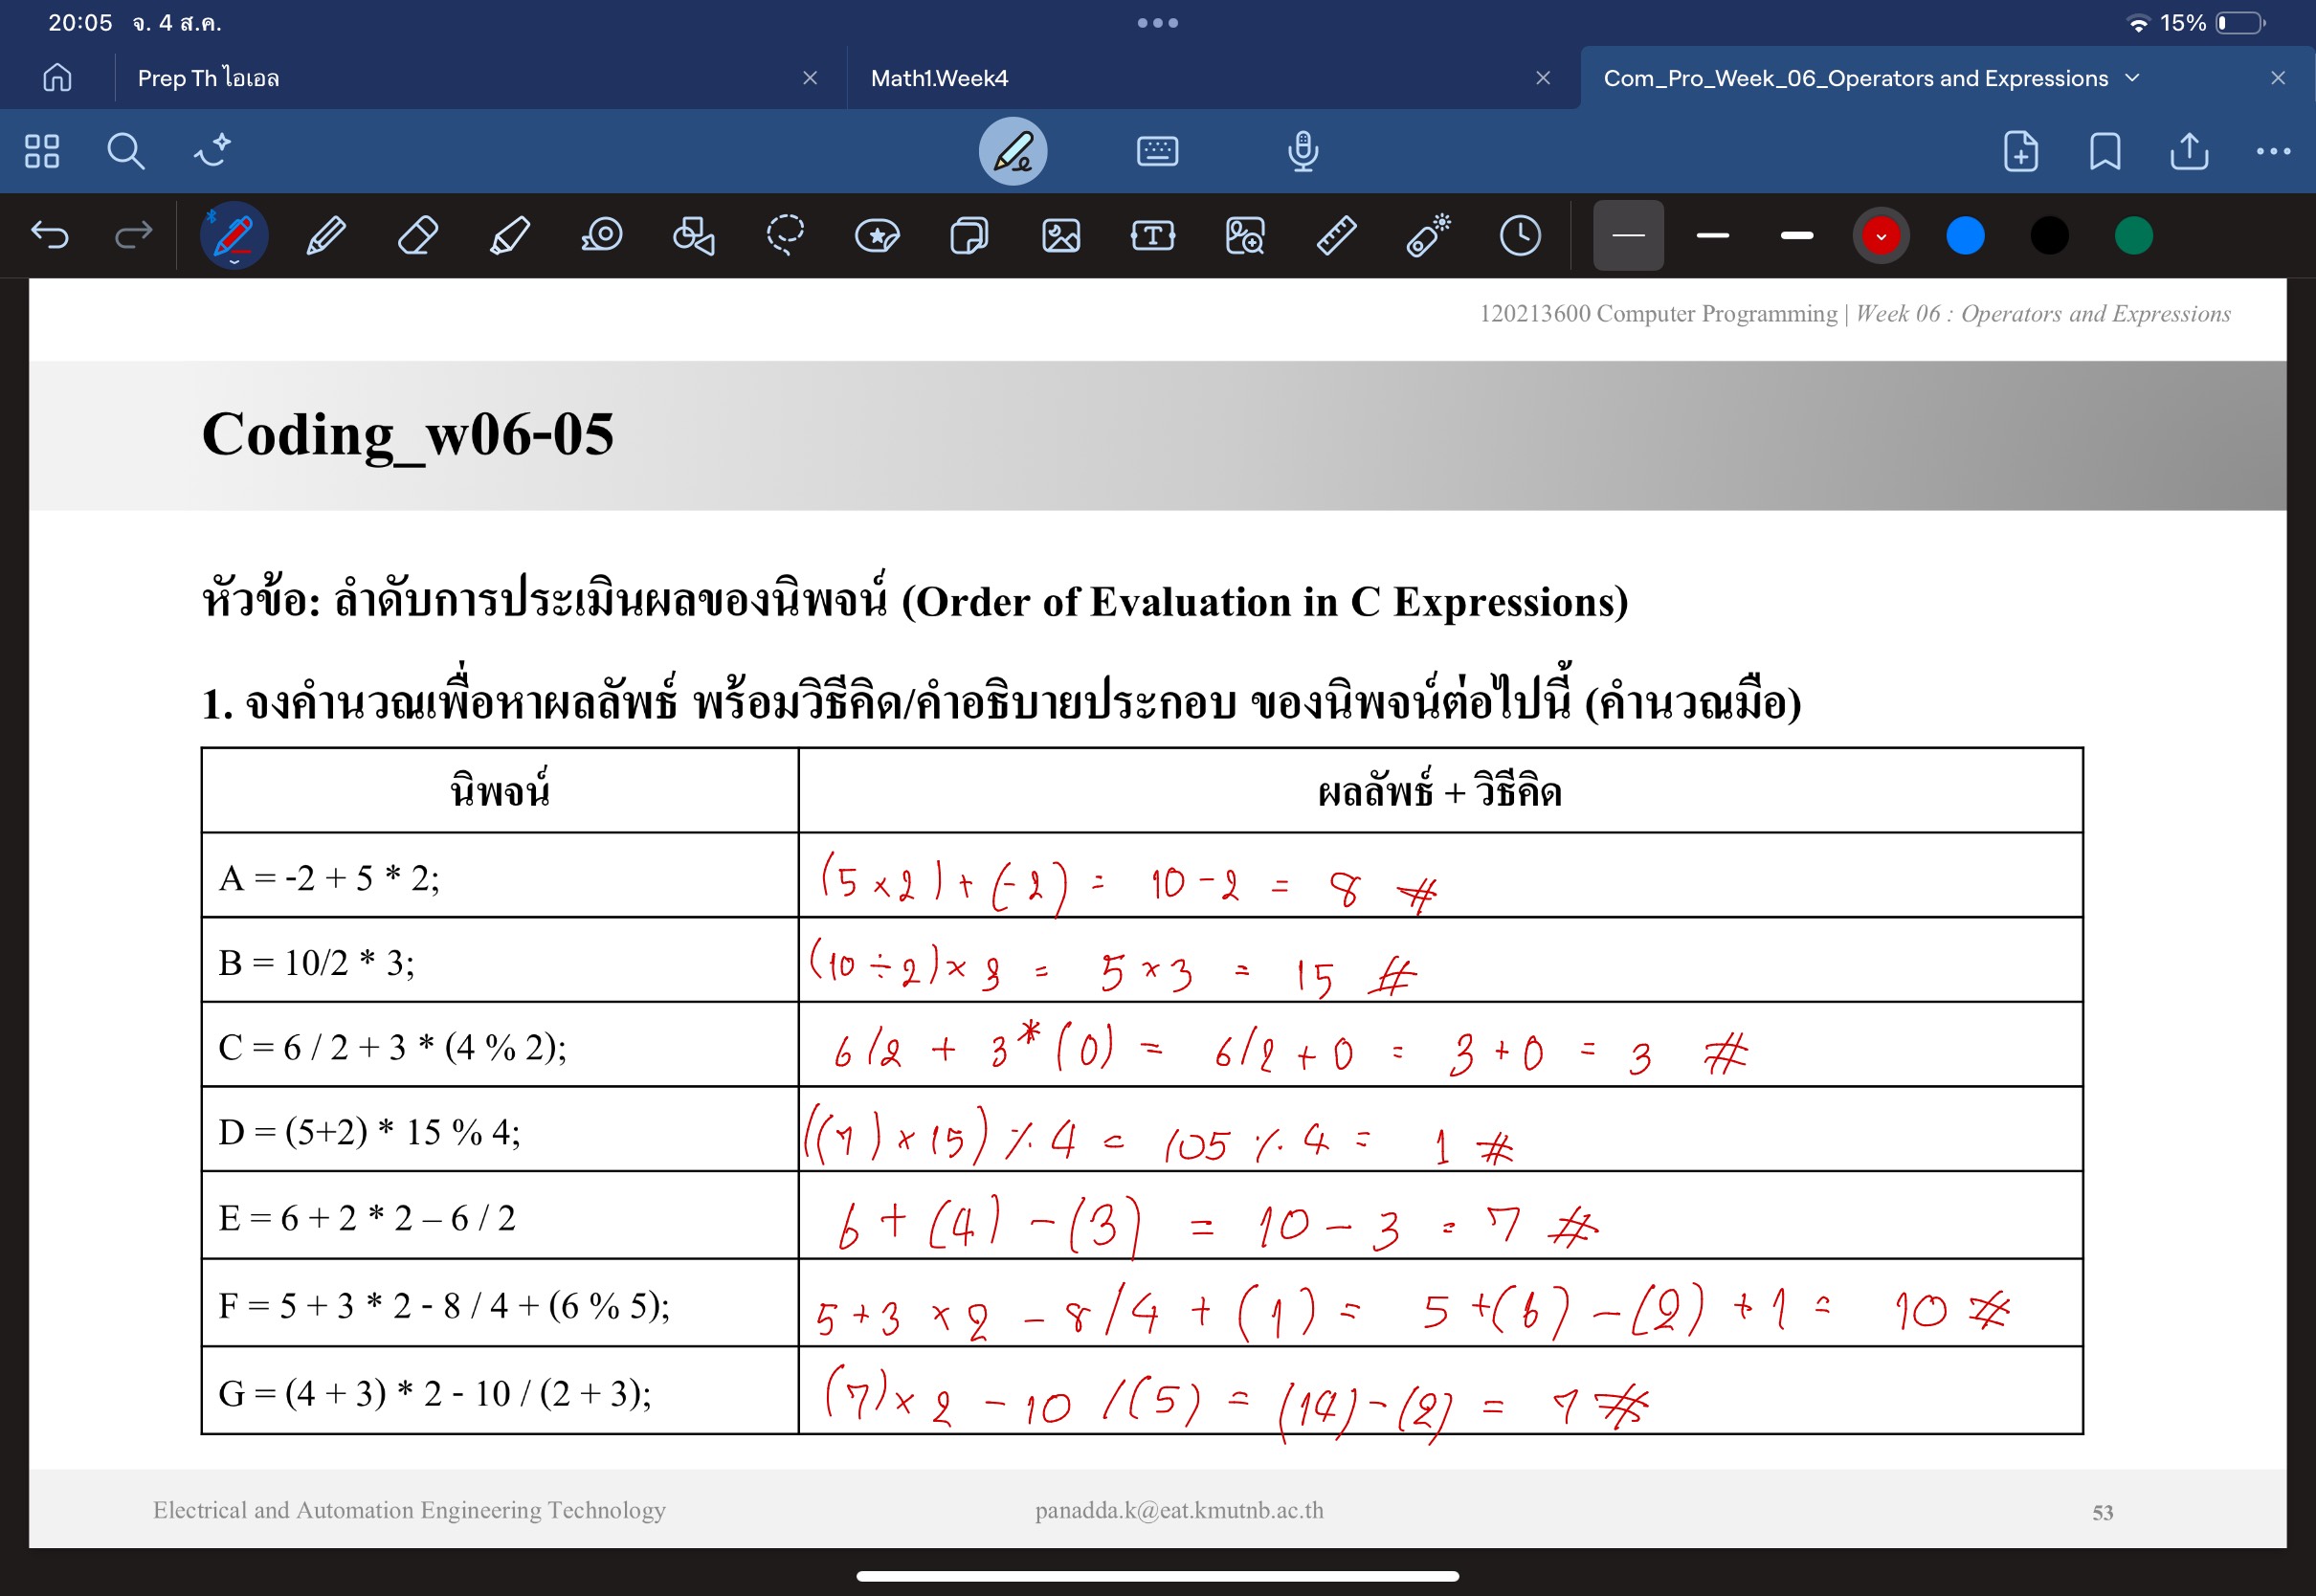 20:05 จ. 4 ส.ค. 15%
Prep Th ไอเอล
Math1.Week4
Com_Pro_Week_06_Operators and Expressions
120213600 Computer Programming | Week 06 : Operators and Expressions
Coding_w06-05
หัวข้อ: ลำดับการประเมินผลของนิพจน์ (Order of Evaluation in C Expressions)
1. จงคำนวณเพื่อหาผลลัพธ์ พร้อมวิธีคิด/คำอธิบายประกอบ ของนิพจน์ต่อไปนี้ (คำนวณมือ)
นิพจน์ ผลลัพธ์ + วิธีคิด
A = -2 + 5 * 2; (5 × 2) + (-2) = 10 - 2 = 8 #
B = 10/2 * 3; (10 ÷ 2) × 3 = 5 × 3 = 15 #
C = 6 / 2 + 3 * (4 % 2); 6/2 + 3 * (0) = 6/2 + 0 = 3 + 0 = 3 #
D = (5+2) * 15 % 4; ((7) × 15) % 4 = 105 % 4 = 1 #
E = 6 + 2 * 2 – 6 / 2 6 + (4) - (3) = 10 - 3 = 7 #
F = 5 + 3 * 2 - 8 / 4 + (6 % 5); 5 + 3 × 2 - 8/4 + (1) = 5 + (6) - (2) + 1 = 10 #
G = (4 + 3) * 2 - 10 / (2 + 3); (7) × 2 - 10 / (5) = (14) - (2) = 7 #
Electrical and Automation Engineering Technology panadda.k@eat.kmutnb.ac.th 53